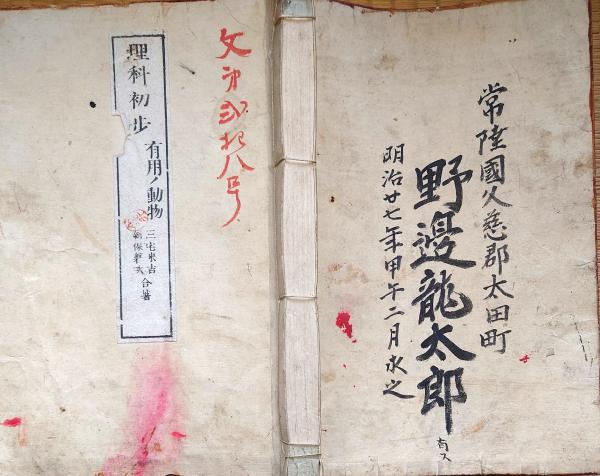 常陸國久慈郡太田町
野邊龍太郎
明治廿七年甲午二月求之
文第弐拾八号
理科初歩
有用ノ動物
三宅米吉
新保磐次
合著